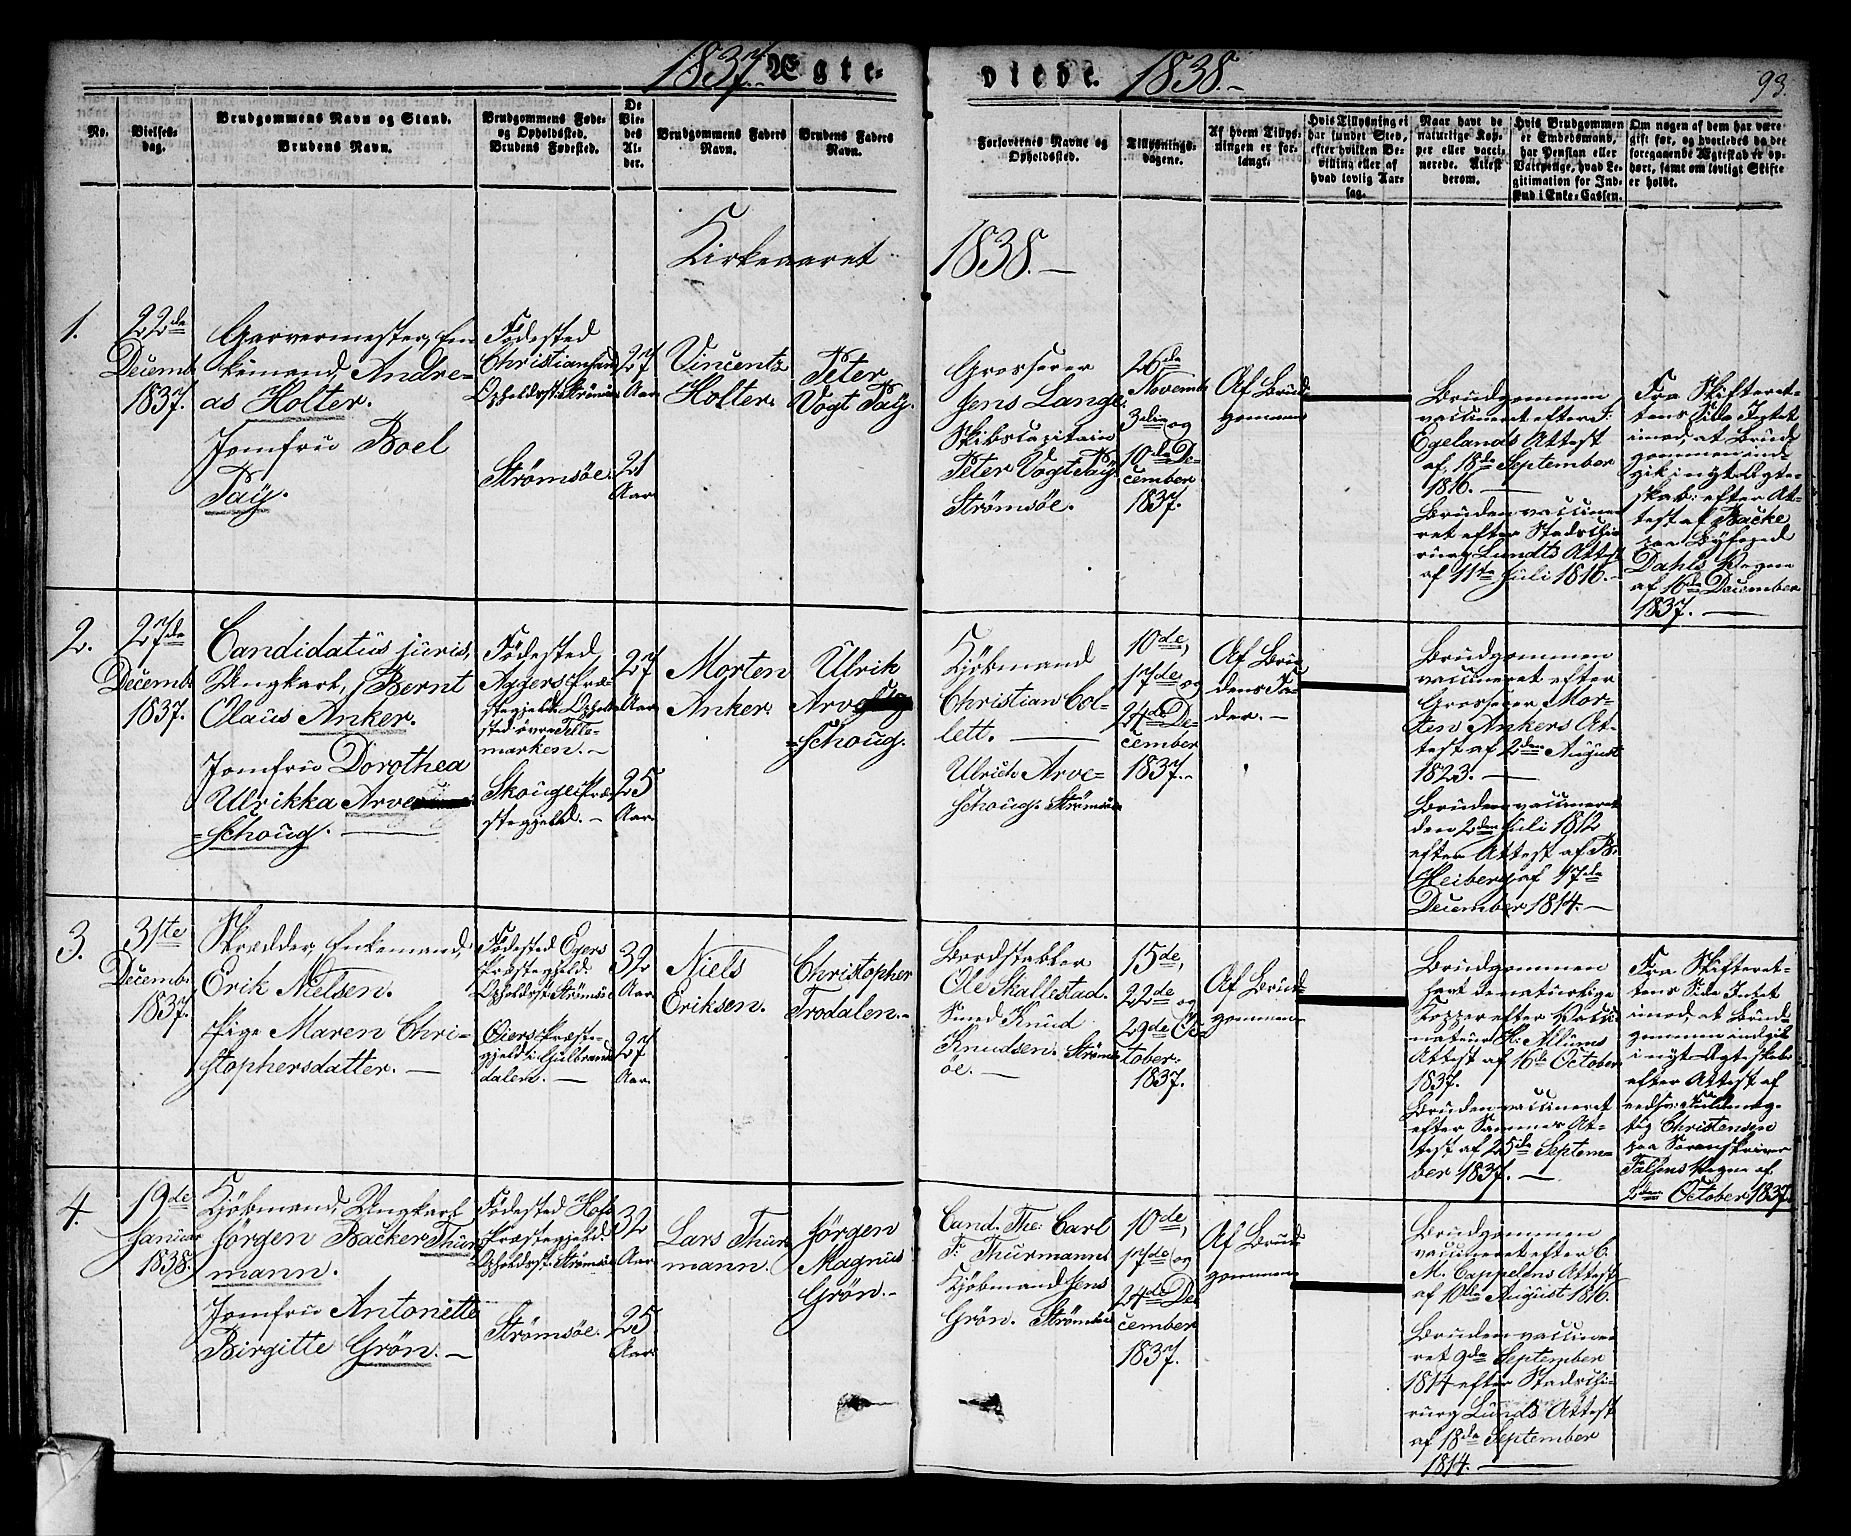 1837. Ægte-
viede. 1838.-
93.
No.
Vielses-
dag.
Brudgommens Navn og Stand.
Brudens Navn.
Brudgommens Føde-
og Opholdssted.
Brudens Fødested.
De
Vie-
des
Al-
der.
Brudgommens Faders
Navn.
Brudens Faders
Navn.
Forlovernes Navne og
Opholdssted.
Tillysnings-
dagene.
Af hvem Tillys-
ningen er for-
langt.
Hvis Tillysning ei
har fundet Sted,
efter hvilken Be-
vilning eller af
hvad lovlig Aar-
sag.
Naar havt de
naturlige Kop-
per eller vacci-
nerede. Attest
derom.
Hvis Brudgommen
er Embedsmand,
har Pension eller
Vartpenge, hvad Le-
gitimation for Ind-
skud i Enke-Cassen.
Om nogen af dem har være
gift før, og hvorledes da det
foregaaende Ægteskab er op-
hørt, samt om lovligt Skifte
er holdt.
Kirkeaaret 1838.-
1.
22de
Decemb.
1837.
Garvermester, En-
kemand, Andre-
as Holter.
Jomfru Boel
Paÿ.
Fødested
Christiansand
Opholdsst: Strømsøe
Strømsøe.
27
Aar.
21
Aar.
Vincentz
Holter.
Peter
Vogt Paÿ.
Grosserer
Jens Lange.
Skibscapitain
Peter Vogt Paÿ.
Strømsøe.
26de
Novemb.
3die og
10de De-
cember
1837.
Af Brud-
gommen
Brudgommen
vaccineret efter
Egelands Attest
af 18de September
1816.
Bruden vaccine-
ret efter Stadschi-
rurg Lundts Attest
af 11te Juli 1816.-
Fra Skifteret-
tens Side Intet
imod, at Brud-
gommen ind-
gik i nyt Ægte-
skab: efter At-
test af Backe
paa Byfoged
Dahls Vegne
af 16de December
1837.
2.
27de
Decemb.
1837.
Candidatus juris,
Ungkarl, Bernt
Olaus Anker.
Jomfru Dorothea
Ulrikka Arve
=Schoug.
Fødested
Aggers Præ-
stegjeld. Ophold-
sted øvre Tele-
marken.-
Skouger Præ-
stegjeld.-
27
Aar.
25
Aar.
Morten
Anker.
Ulrik
Arve
=Schoug.
Kjøbmand
Christian Col-
lett.
Ulrich Arve-
Schoug. Strømsøe
10de,
17de og
24de De-
cember
1837.-
Af Bru-
dens Fa-
der.-
Brudgommen
vaccineret efter
Grosserer Mor-
ten Ankers At-
test af 2den August
1823.
Bruden vaccineret
den 2den Juli 1812
efter Attest af P.
Heiberg af 17de
December 1814.-
3.
31te
Decemb.
1837.
Skrædder, Enkemand,
Erik Nielsen.
Pige Maren Chri-
stophersdatter.-
Fødested Egers
Præstegjeld.
Opholdsst: Strømsøe
Oiers Præste-
gjeld i Gulbrands-
dalen.
32
Aar.
27
Aar.
Niels
Eriksen.
Christopher
Trodalen.-
Bordstabler
Ole Skallestad.
Smed Knud
Knudsen. Strøms-
øe.
15de,
22de og
29de Oc-
tober.
1837.
Af Brud-
gommen
Brudgommen
havt de naturlige
Kopper efter Vacci-
nateur H. Mlums
Attest af 16de October
1837.
Bruden vaccineret
efter Sammes At-
test af 25de Septem-
ber 1837.-
Fra Skifteret-
tens Side Intet
imod, at Brud-
gommen indgik
i nyt Ægteskab
efter Attest af
Fuldmæg-
tig Christensen
paa Sorenskriver
Falsens Vegne af
October 1837.
4.
19de
Januar
1838.
Kjøbmand, Ungkarl
Jørgen Backer Thur-
mann.
Jomfru Antoniette
Birgitte Grøn.-
Fødested Hofs
Præstegjeld.
Opholdsst: Strømsøe
Strømsøe.
32
Aar.
25
Aar.
Lars Thur-
mann.
Jørgen
Magnus
Grøn.-
Cand. The: Carl
F: Thurmann.
Kjøbmand Jens
Grøn. Strømsøe
10de,
17de og
24de De-
cember
1837.
Af Brud-
gommen
Brudgommen
vaccineret efter C.
M. Cappelens Attest
af 10de August 1816.
Bruden vaccine-
ret 9de September
1814 efter Stadschi-
rurg Lunds Attest
af 18de September
1814.